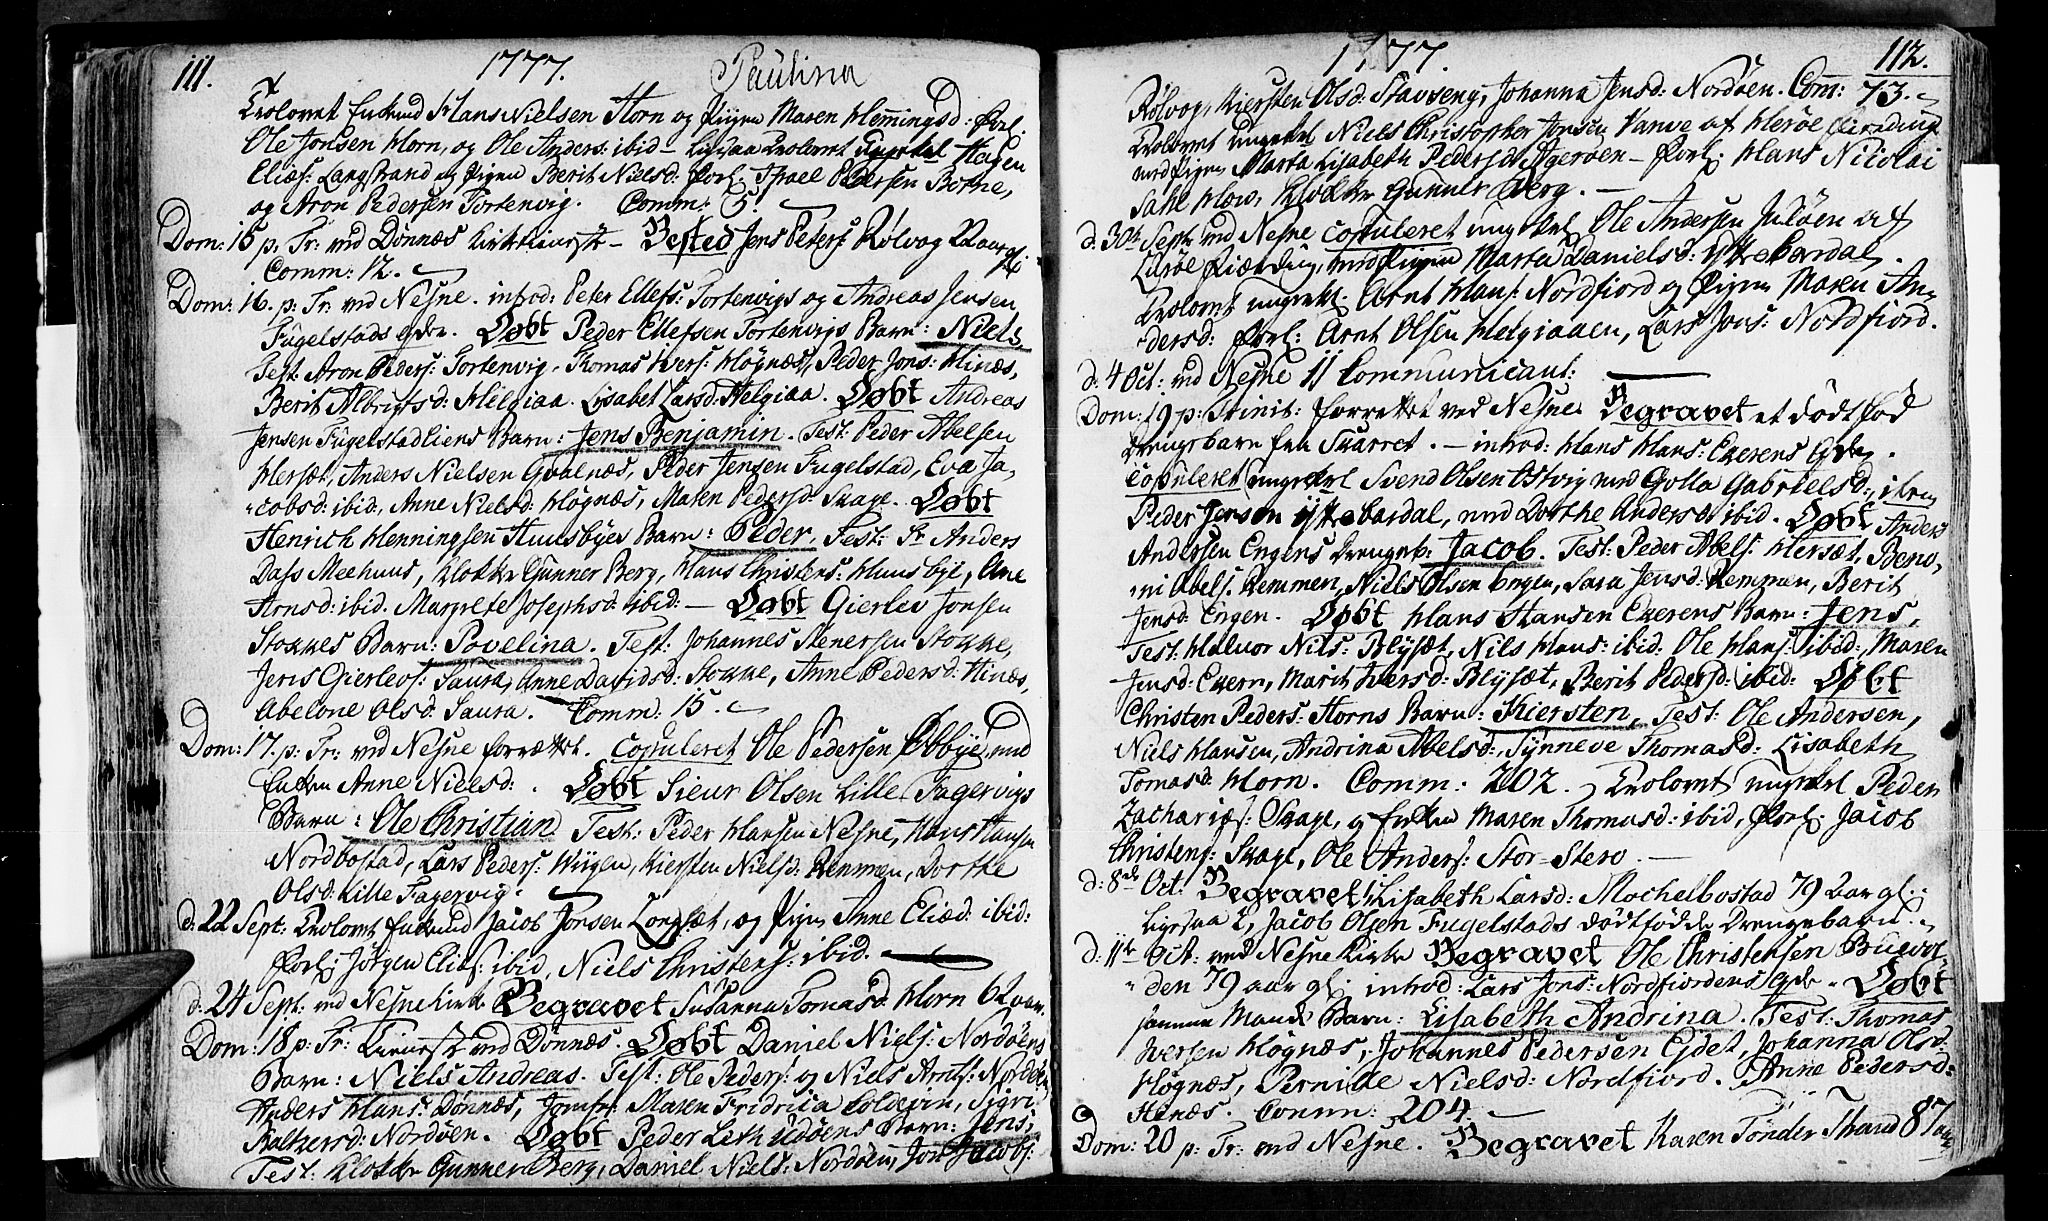 111. 1777. Paulina
Trolovet Enkemd Hans Nielsen Horn og Pigen Maren Hemingsd: Forl:
Ole Jonsen Horn, og Ole Anders: ibid – Ligesaa Trolovet Hagen
Eliæs: Langstrand og Pigen Berit Nielsd: Forl: Israel Pedersen Botne,
og Aron Pedersen Tortenvig. Comm: 5.
Dom: 15 p: Tr: ved Dønnæs – Bested Jens Peders: Rølvog 22 aar gl:
Comm: 12.
Dom: 16. p: Tr: ved Nesne. introd: Peter Ellefs: Tortenvigs og Andreas Jensen
Fugelstads qder. Døbt Peder Ellefsen Tortenvigs Barn: Niels,
Test: Aron Peders: Tortenvig, Thomas Ivers: Høgnæs, Peder Jons: Hinæs,
Berit Albrigtsd: Helgiaa. Lisabet Larsd: Helgiaa. Døbt Andreas
Jensen Fugelstadliens Barn: Jens Benjamin. Test: Peder Abelsen
Hersæt, Anders Nielsen Qvalnæs, Peder Jensen Fugelstad, Eva Ja-
cobsd: ibid:, Anne Nielsd: Høgnæs, Maren Pedersd: Skage. Døbt
Henrich Henningsen Huusbyes Barn: Peder. Test: Sr Anders
Dass Meehuus, Klokker Gunner Berg, Hans Christens: Huusbye, Ane
Arnsd: ibid. Margrete Josephsd: ibid: – Døbt Gierlev Jonsen
Stokkes Barn: Povelina. Test: Johannes Stenersen Stokke,
Jens Gierlevs: Saura, Anne Davidsd: Stokke, Anne Pedersd: Hinæs,
Abelone Olsd: Saura. Comm: 15.
Dom: 17. p: Tr: ved Nesne forrettet. Copuleret Ole Pedersen Ebbye, med
Enken Anne Nielsd: . Døbt Sieur Olsen Lille Fagervigs
Barn: Ole Christian. Test: Peder Hansen Nesne, Hans Hansen
Nordbostad, Lars Peders: Wiigen, Kiersten Nielsd: Remmen, Dorthe
Olsd: Lille Fagervig.
d: 22 Sept: Trolovet Enkemd Jacob Jonsen Longsæt, og Pigen Anne Eliæd: ibid:
Forl: Jørgen Eliæs: ibid, Niels Christens: ibid.
d: 24 Sept: ved Nesne Kirke Begravet Susanna Tomasd: Horn 62 aar.
Dom: 18 p: Tr: ved Dønnæs. Døbt Daniel Niels: Nordøens
Barn: Niels Andreas. Test: Ole Peders: og Niels Arnts: Nordøen
Anders Hans: Dønnæs, Jomfr: Maren Fridrica Coldevin, Sigri
Baltzersd: Nordøen. Døbt Peder Barn: Jens,
Test: Klokker Gunner Berg, Daniel Niels: Nordøen, Jon Jacobs:
1777. 112.
Rølvog, Kiersten Olsd: Stavseng, Johanna Jensd: Nordøen. Com: 73.
Trolovet ungekal Niels Christopher Jonsen af Herøe Fierding
med Pigen Marta Lisabeth Pedersd: Agerøen – Forl: Hans Nicolai
Sahl How, Klokker Gunner Berg. –
d: 30te Sept: ved Nesne copuleret ungekal Ole Andersen Juløen af
Fiærding, med Pigen Marta Daniels: Ytrebardal.
Trolovet ungekl. Arnt Hans: Nordfiord og Pigen Maren An-
dersd: Forl: Arnt Olsen Helgiaaen, Lars Jons: Nordfiord.
d: 4 Oct: ved Nesne 11 Communicant:
Dom: 19 p: Trinit: forrettet ved Nesne. Begravet et dødfød
Drengebarn fra Skarret. – introd: Hans Hans: Exerens Qde.
Copuleret ungekal Svend Olsen Ostvig med Golla Gabrielsd:, item
Peder Jensen Yttrebardal, med Dorthe Andersd: ibid. Døbt Anders
Andersen Engens Drengeb: Jacob. Test: Peder Abels: Hersæt, Beno-
mi Abels: Remmen, Niels Olsen Engen, Sara Jensd: Remmen, Berit
Jensd: Engen. Døbt Hans Hansen Exerens Barn: Jens,
Test: Halvor Nils: Blysæt, Nils Hans: ibid: Ole Hans: ibid:, Maren
Jensd: Exern, Marit Iversd: Blysæt, Berit Pedersd: ibid: Døbt
Christen Peders: Horns Barn: Kiersten, Test: Ole Andersen,
Niels Hansen, Andrina Abelsd:, Synneve Thomasd: Lisabeth
Tomasd: Horn. Comm: 202. Trolovet ungekal Peder
Zachariæs: Skage, og Enken Maren Thomasd: ibid, Forl: Jacob
Christens: Skage, Ole Anders: Stor-Stero. –
d: 8de Oct: Begravet Lisabeth Larsd: Mochelbostad 79 Aar gl:
Ligesaa Jacob Olsen Fugelstads dødfødde Drengebarn.
d: 11te Oct: ved Nesne Kirke Begravet Ole Christensen Bruvol-
den 79 aar gl: introd: Lars Jons: Nordfiordens Qde. Døbt
samme Mands Barn: Lisabeth Andrina. Test: Thomas
Iversen Høgnæs, Johannes Pedersen Eidet, Johanna Olsd:
Høgnæs, Pernille Nielsd: Nordfiord. Anne Pedersd:
Henæs. Comm: 204.
Dom: 20 p: Tr: ved Nesne. Begravet Karen Tønder Strand 87 aar